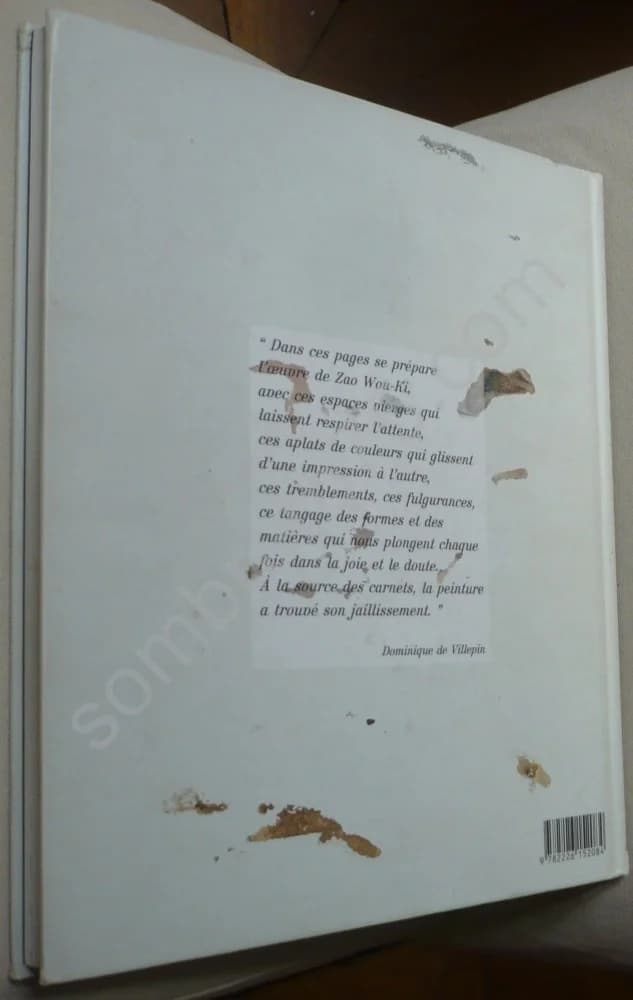 “ Dans ces pages se prépare
l'œuvre de Zao Wou-Ki,
avec ces espaces vierges qui
laissent respirer l'attente,
ces aplats de couleurs qui glissent
d'une impression à l'autre,
ces tremblements, ces fulgurances,
ce tangage des formes et des
matières qui nous plongent chaque
fois dans la joie et le doute.
À la source des carnets, la peinture
a trouvé son jaillissement. ”
Dominique de Villepin
9 782226 152084